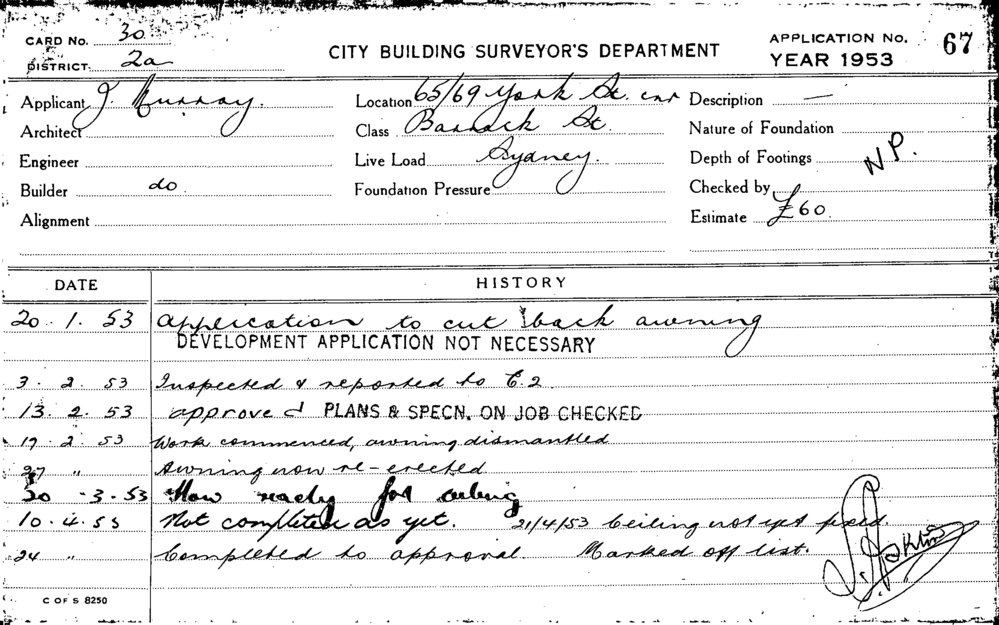 CARD No. 30
DISTRICT 2a
CITY BUILDING SURVEYOR'S DEPARTMENT
APPLICATION No. 67
YEAR 1953
Applicant J. Murray.
Architect
Engineer
Builder do
Alignment
Location 65/69 York St. cnr
Class Barrack St.
Live Load Sydney.
Foundation Pressure
Description —
Nature of Foundation
Depth of Footings N.P.
Checked by
Estimate £60
DATE HISTORY
20.1.53 Application to cut back awning
DEVELOPMENT APPLICATION NOT NECESSARY
3.2.53 Inspected & reported to E.2
13.2.53 approved PLANS & SPECN. ON JOB CHECKED
19.2.53 Work commenced, awning dismantled
27 " Awning now re-erected
30-3-53 Now ready for ceiling
10.4.53 Not completed as yet. 21/4/53 Ceiling not yet fixed.
24 " Completed to approval. Marked off list.
C OF S 8250